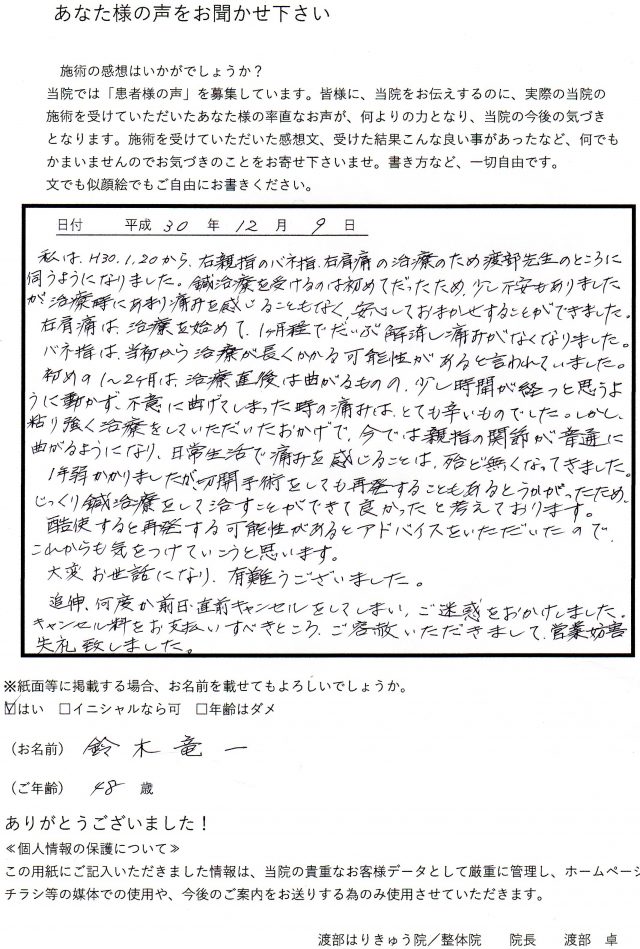 あなた様の声をお聞かせ下さい
施術の感想はいかがでしょうか？
当院では「患者様の声」を募集しています。皆様に、当院をお伝えするのに、実際の当院の
施術を受けていただいたあなた様の率直なお声が、何よりの力となり、当院の今後の気づき
となります。施術を受けていただいた感想文、受けた結果こんな良い事があったなど、何でも
かまいませんのでお気づきのことをお寄せ下さいませ。書き方など、一切自由です。
文でも似顔絵でもご自由にお書きください。
日付 平成 30 年 12 月 9 日
私は、H30.1.20から、右親指のバネ指、右肩痛の治療のため渡部先生のところに
伺うようになりました。鍼治療を受けるのは初めてだったため、少し不安もありました
が治療時にあまり痛みを感じることもなく、安心しておまかせすることができました。
右肩痛は、治療を始めて、1ヶ月程でだいぶ解消し痛みがなくなりました。
バネ指は、当初から治療が長くかかる可能性があると言われていました。
初めの1～2ヶ月は、治療直後は曲がるものの、少し時間が経つと思うよ
うに動かず、不意に曲げてしまった時の痛みは、とても辛いものでした。しかし、
粘り強く治療をしていただいたおかげで、今では親指の関節が普通に
曲がるようになり、日常生活で痛みを感じることは、殆ど無くなってきました。
1年弱かかりましたが切開手術をしても再発することもあるとうかがったため、
じっくり鍼治療をして治すことができて良かったと考えております。
酷使すると再発する可能性があるとアドバイスをいただいたので、
これからも気をつけていこうと思います。
大変お世話になり、有難うございました。
追伸、何度か前日・直前キャンセルをしてしまい、ご迷惑をおかけしました。
キャンセル料をお支払いすべきところ、ご容赦いただきまして、営業妨害
失礼致しました。
※紙面等に掲載する場合、お名前を載せてもよろしいでしょうか。
☑はい □イニシャルなら可 □年齢はダメ
（お名前） 鈴木竜一
（ご年齢） 48 歳
ありがとうございました！
≪個人情報の保護について≫
この用紙にご記入いただきました情報は、当院の貴重なお客様データとして厳重に管理し、ホームページ
チラシ等の媒体での使用や、今後のご案内をお送りする為のみ使用させていただきます。
渡部はりきゅう院／整体院 院長 渡部 卓